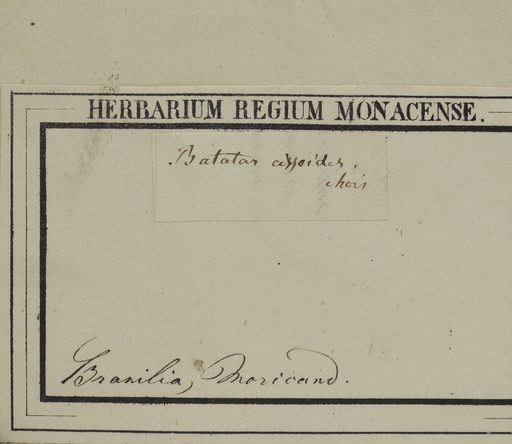 HERBARIUM REGIUM MONACENSE.
Batatas cissoides,
chois
Brasilia, Moricand.